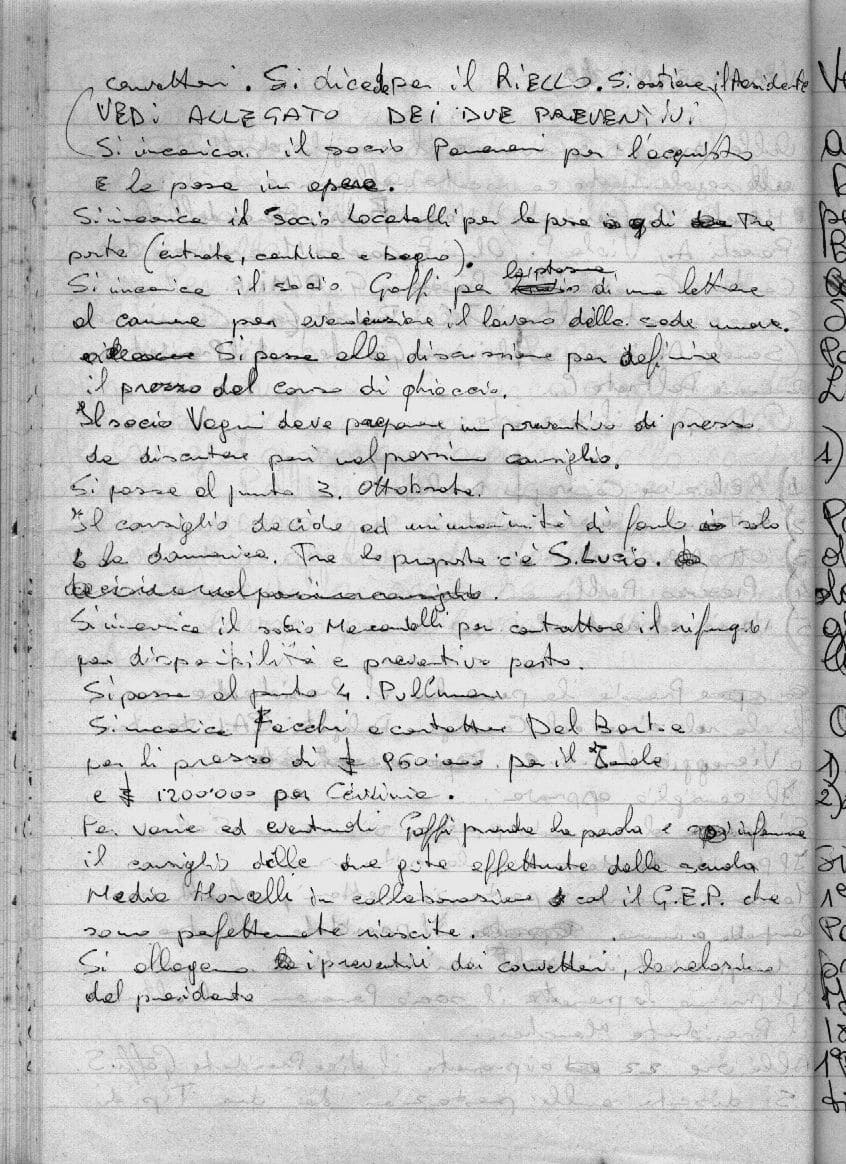 convettori. Si dicede per il RIELLO. Si astiene il Presidente
(VEDI ALLEGATO DEI DUE PREVENTIVI)
Si incarica il socio per l'acquisto
E la posa in opera.
Si incarica il socio Locatelli per la posa di Tre
porte (entrata, cantina e bagno).
Si incarica il socio Goffi per la di una lettera
al comune per il lavoro della sede nuova.
Si passa alla discussione per definire
il prezzo del corso di ghiaccio.
Il socio Vegni deve preparare un preventivo di prezzo
da discutere poi nel prossimo consiglio.
Si passa al punto 3. Ottobrata.
Il consiglio decide ad unanimità di farla solo
la domenica. Tra le proposte c'è S. Lucio.
decisione nel prossimo consiglio.
Si incarica il socio Mercantelli per contattare il rifugio
per disponibilità e preventivo pasto.
Si passa al punto 4. Pullman
Si incarica Facchi a contattare Del Barba
per li prezzo di £ 950'000 per il Tonale
e £ 1200'000 per Cervinia.
Per varie ed eventuali Goffi prende la parola e informa
il consiglio delle due gite effettuate dalla scuola
Media Morcelli in collaborazione col il G.E.P. che
sono perfettamente riuscite.
Si allegano i preventivi dei convettori, la relazione
del presidente